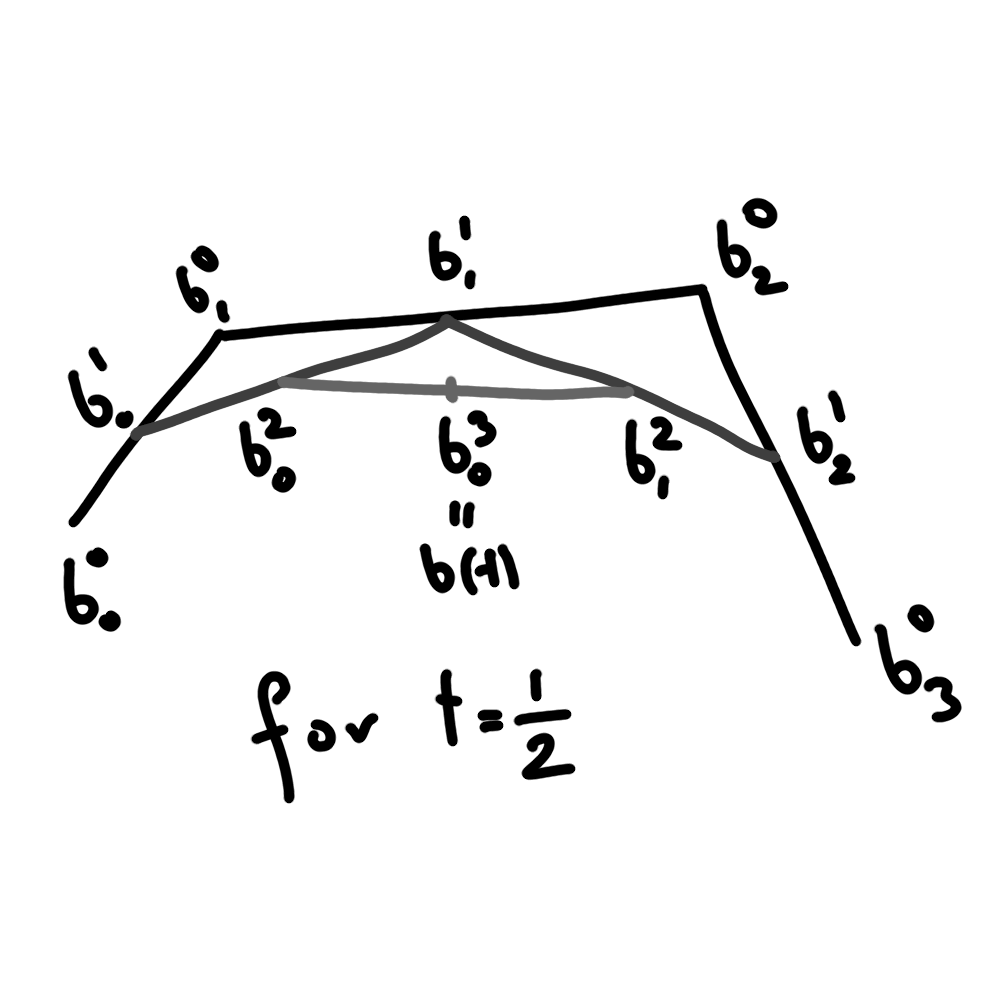 b₂⁰
b₁¹
b₁⁰
b₀¹
b₀² b₀³ b₁² b₂¹
=
b(t)
b₀⁰
b₃⁰
for t = 1/2